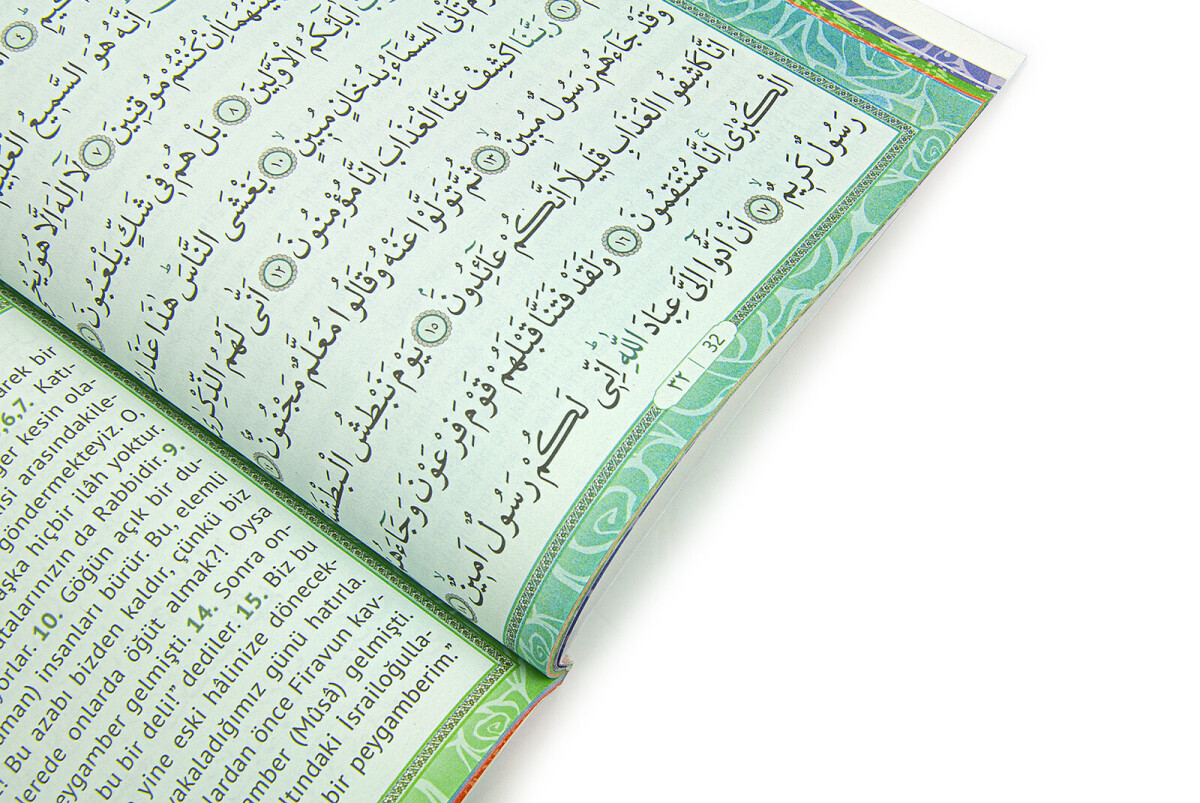 ٤
اِنَّهُ هُوَ السَّم۪يعُ
اِنْ كُنْتُمْ مُوقِن۪ينَ ٧ لَٓا اِلٰهَ اِلَّا هُوَ
اٰبَٓائِكُمُ الْاَوَّل۪ينَ ٨ بَلْ هُمْ ف۪ي شَكٍّ يَلْعَبُونَ
تَأْتِي السَّمَٓاءُ بِدُخَانٍ مُب۪ينٍ ١٠ يَغْشَى النَّاسَ هٰذَا عَذَابٌ
١١ رَبَّنَا اكْشِفْ عَنَّا الْعَذَابَ اِنَّا مُؤْمِنُونَ ١٢ اَنّٰى لَهُمُ الذِّكْرٰى
وَقَدْ جَٓاءَهُمْ رَسُولٌ مُب۪ينٌ ١٣ ثُمَّ تَوَلَّوْا عَنْهُ وَقَالُوا مُعَلَّمٌ مَجْنُونٌ
اِنَّا كَاشِفُوا الْعَذَابِ قَل۪يلًا اِنَّكُمْ عَٓائِدُونَ ١٥ يَوْمَ نَبْطِشُ الْبَطْشَةَ
الْكُبْرٰى اِنَّا مُنْتَقِمُونَ ١٦ وَلَقَدْ فَتَنَّا قَبْلَهُمْ قَوْمَ فِرْعَوْنَ وَجَٓاءَهُمْ
رَسُولٌ كَر۪يمٌ ١٧ اَنْ اَدُّٓوا اِلَيَّ عِبَادَ اللّٰهِ اِنّ۪ي لَكُمْ رَسُولٌ اَم۪ينٌ
٣٢ | 32
bir
6,7. Katı-
kesin ola-
arasındakile-
göndermekteyiz. O,
hiçbir ilâh yoktur.
da Rabbidir. 9.
10. Göğün açık bir du-
insanları bürür. Bu, elemli
Bu azabı bizden kaldır, çünkü biz
onlarda öğüt almak?! Oysa
gelmişti. 14. Sonra on-
bu bir deli!” dediler. 15. Biz bu
yine eski hâlinize dönecek-
yakaladığımız günü hatırla,
önce Firavun kav-
(Mûsâ) gelmişti.
İsrailoğulla-
bir peygamberim.”